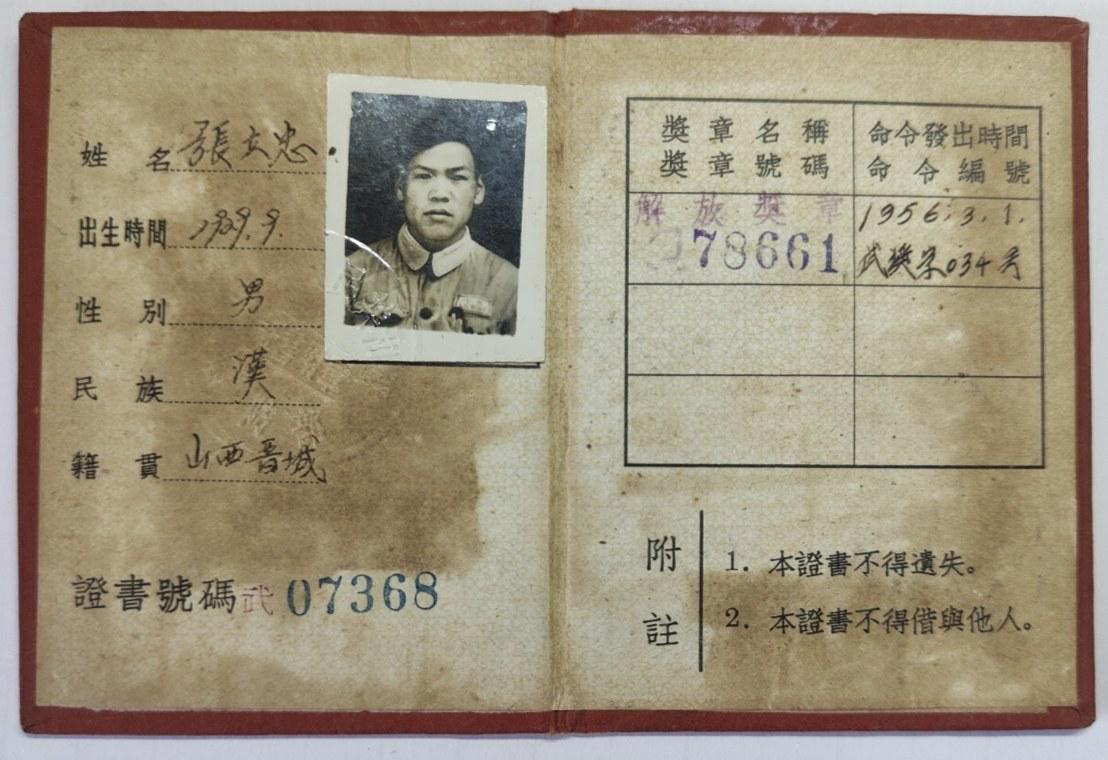 姓 名 張立忠
出生時間 1929.9.
性 別 男
民 族 漢
籍 貫 山西晋城
證書號碼 武 07368
獎章名稱 命令發出時間
獎章號碼 命令編號
解放獎章 1956.3.1.
78661 武獎字034号
附註
1. 本證書不得遺失。
2. 本證書不得借與他人。